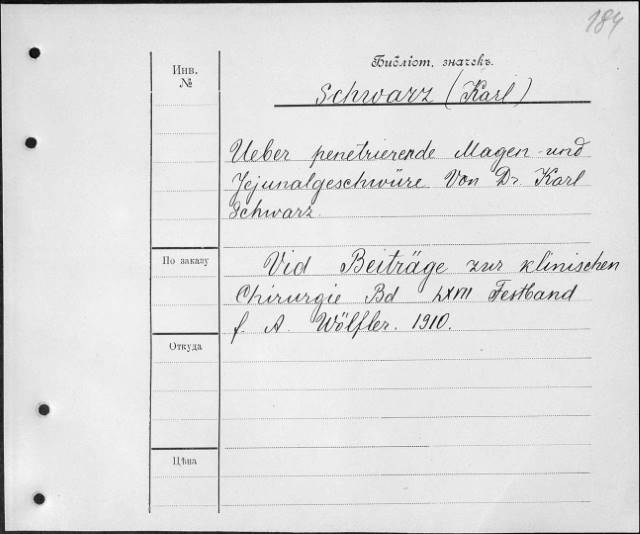 184
Библіот. значекъ.
Schwarz (Karl)
Инв.
№
Ueber penetrierende Magen-und
Jejunalgeschwüre. Von Dr. Karl
Schwarz.
По заказу
Vid Beiträge zur klinischen
Chirurgie Bd LXVII Festband
f. A. Wölfler. 1910.
Откуда
Цѣна